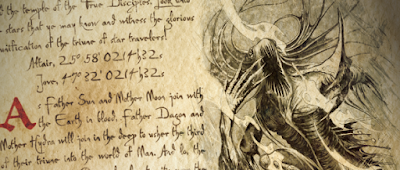 the temple of the True Disciples. Look unto
stars that ye may know and witness the glorious
unification of the triune of star travelers!
Altair, 25° 58' 0214h32s
Jove, 47° 32' 0214h32s
As Father Sun and Mother Moon join with
the Earth in blood, Father Dagon and
Mother Hydra will join in the deep to usher the third
of their triune into the world of Man. And by the